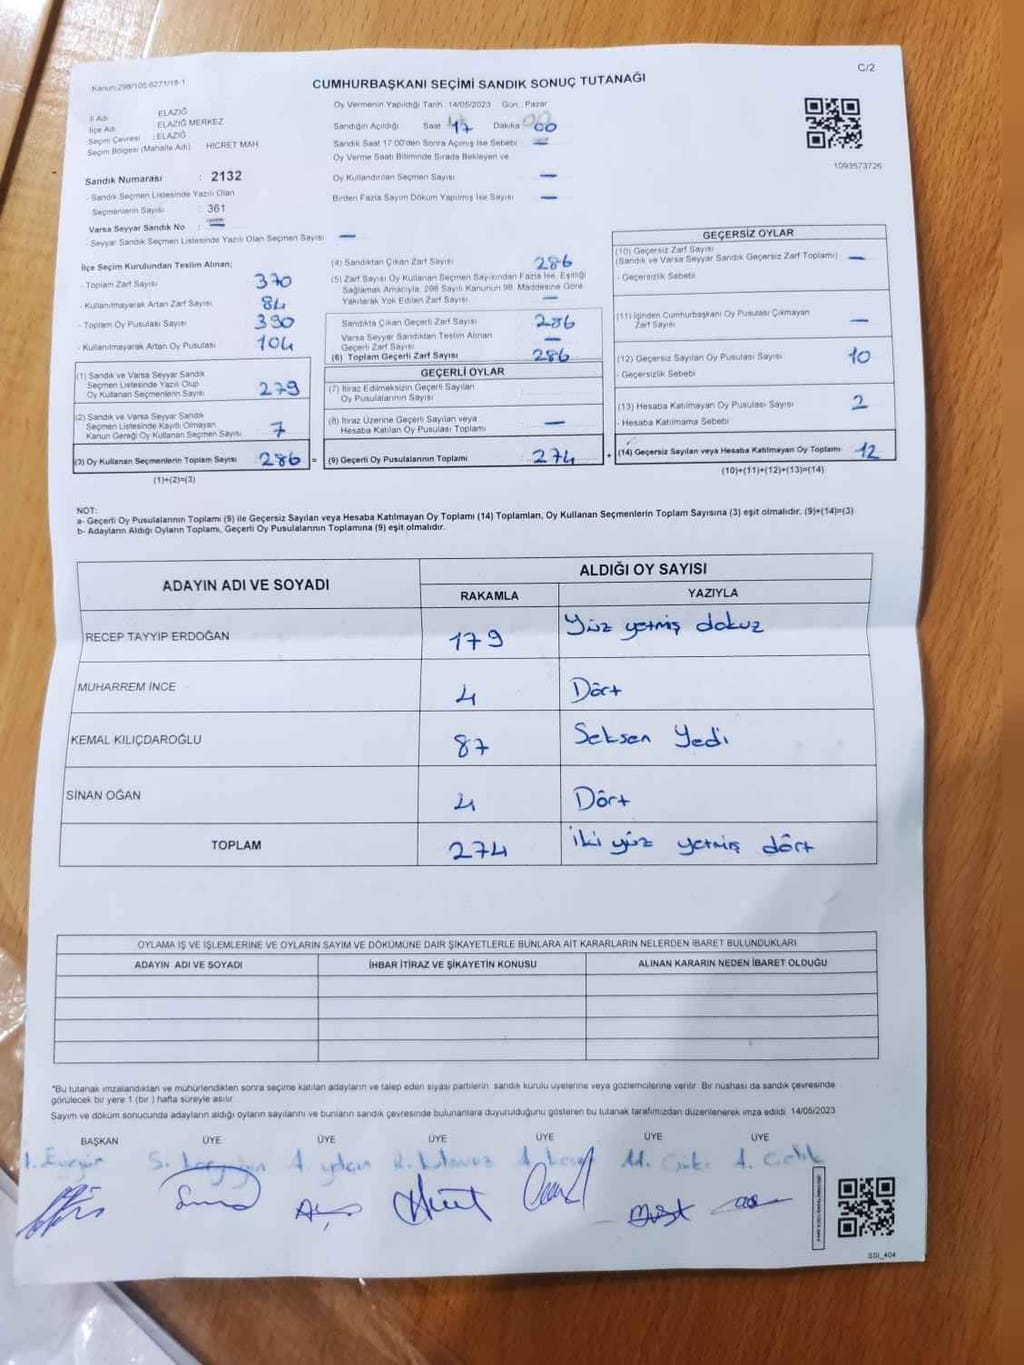 C/2
Kanun:298/105.6271/18-1
CUMHURBAŞKANI SEÇİMİ SANDIK SONUÇ TUTANAĞI
İl Adı ELAZIĞ
İlçe Adı ELAZIĞ MERKEZ
Seçim Çevresi : ELAZIĞ
Seçim Bölgesi (Mahalle Adı) HİCRET MAH
Sandık Numarası : 2132
- Sandık Seçmen Listesinde Yazılı Olan
Seçmenlerin Sayısı : 361
Varsa Seyyar Sandık No : —
- Seyyar Sandık Seçmen Listesinde Yazılı Olan Seçmen Sayısı : —
Oy Vermenin Yapıldığı Tarih : 14/05/2023 Gün : Pazar
Sandığın Açıldığı Saat 17 Dakika 00
Sandık Saat 17:00'den Sonra Açılmış İse Sebebi —
Oy Verme Saati Bitiminde Sırada Bekleyen ve
Oy Kullandırılan Seçmen Sayısı —
Birden Fazla Sayım Döküm Yapılmış İse Sayısı —
1093573726
İlçe Seçim Kurulundan Teslim Alınan;
- Toplam Zarf Sayısı 370
- Kullanılmayarak Artan Zarf Sayısı 84
- Toplam Oy Pusulası Sayısı 390
- Kullanılmayarak Artan Oy Pusulası 104
(1) Sandık ve Varsa Seyyar Sandık
Seçmen Listesinde Yazılı Olup
Oy Kullanan Seçmenlerin Sayısı 279
(2) Sandık ve Varsa Seyyar Sandık
Seçmen Listesinde Kayıtlı Olmayan
Kanun Gereği Oy Kullanan Seçmen Sayısı 7
(3) Oy Kullanan Seçmenlerin Toplam Sayısı 286 =
(1)+(2)=(3)
(4) Sandıktan Çıkan Zarf Sayısı 286
(5) Zarf Sayısı Oy Kullanan Seçmen Sayısından Fazla İse, Eşitliği
Sağlamak Amacıyla, 298 Sayılı Kanunun 98. Maddesine Göre
Yakılarak Yok Edilen Zarf Sayısı —
Sandıkta Çıkan Geçerli Zarf Sayısı 286
Varsa Seyyar Sandıktan Teslim Alınan
Geçerli Zarf Sayısı —
(6) Toplam Geçerli Zarf Sayısı 286
GEÇERLİ OYLAR
(7) İtiraz Edilmeksizin Geçerli Sayılan
Oy Pusulalarının Sayısı
(8) İtiraz Üzerine Geçerli Sayılan veya
Hesaba Katılan Oy Pusulası Toplamı —
(9) Geçerli Oy Pusulalarının Toplamı 274 +
GEÇERSİZ OYLAR
(10) Geçersiz Zarf Sayısı
(Sandık ve Varsa Seyyar Sandık Geçersiz Zarf Toplamı) —
- Geçersizlik Sebebi
(11) İçinden Cumhurbaşkanı Oy Pusulası Çıkmayan
Zarf Sayısı —
(12) Geçersiz Sayılan Oy Pusulası Sayısı 10
- Geçersizlik Sebebi
(13) Hesaba Katılmayan Oy Pusulası Sayısı 2
- Hesaba Katılmama Sebebi
(14) Geçersiz Sayılan veya Hesaba Katılmayan Oy Toplamı 12
(10)+(11)+(12)+(13)=(14)
NOT:
a- Geçerli Oy Pusulalarının Toplamı (9) ile Geçersiz Sayılan veya Hesaba Katılmayan Oy Toplamı (14) Toplamları, Oy Kullanan Seçmenlerin Toplam Sayısına (3) eşit olmalıdır. (9)+(14)=(3)
b- Adayların Aldığı Oyların Toplamı, Geçerli Oy Pusulalarının Toplamına (9) eşit olmalıdır.
ADAYIN ADI VE SOYADI
ALDIĞI OY SAYISI
RAKAMLA YAZIYLA
RECEP TAYYİP ERDOĞAN 179 Yüz yetmiş dokuz
MUHARREM İNCE 4 Dört
KEMAL KILIÇDAROĞLU 87 Seksen Yedi
SİNAN OĞAN 4 Dört
TOPLAM 274 İki yüz yetmiş dört
OYLAMA İŞ VE İŞLEMLERİNE VE OYLARIN SAYIM VE DÖKÜMÜNE DAİR ŞİKAYETLERLE BUNLARA AİT KARARLARIN NELERDEN İBARET BULUNDUKLARI
ADAYIN ADI VE SOYADI İHBAR İTİRAZ VE ŞİKAYETİN KONUSU ALINAN KARARIN NEDEN İBARET OLDUĞU
*Bu tutanak imzalandıktan ve mühürlendikten sonra seçime katılan adayların ve talep eden siyasi partilerin sandık kurulu üyelerine veya gözlemcilerine verilir. Bir nüshası da sandık çevresinde
görülecek bir yere 1 (bir) hafta süreyle asılır.
Sayım ve döküm sonucunda adayların aldığı oyların sayılarını ve bunların sandık çevresinde bulunanlara duyurulduğunu gösteren bu tutanak tarafımızdan düzenlenerek imza edildi. 14/05/2023
BAŞKAN ÜYE ÜYE ÜYE ÜYE ÜYE ÜYE
SSI_404